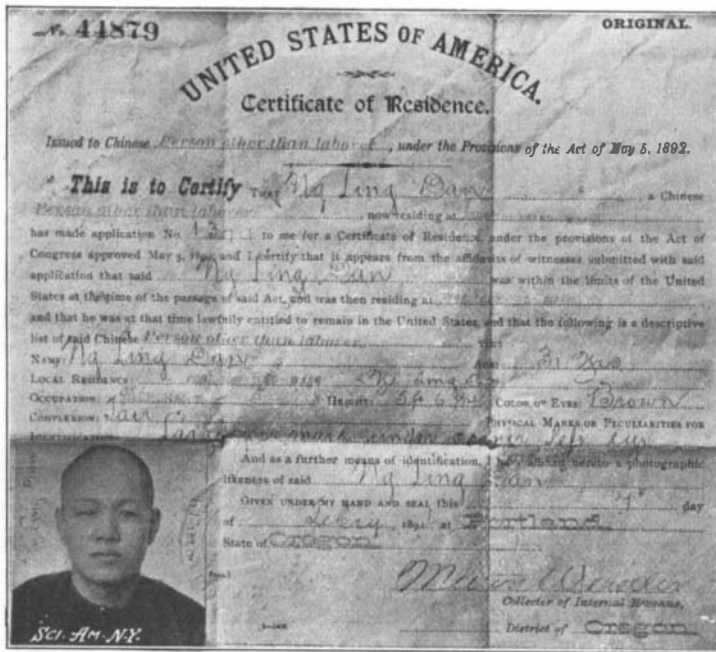 No. 44879
ORIGINAL.
UNITED STATES OF AMERICA.
Certificate of Residence.
Issued to Chinese Person other than laborer, under the Provisions of the Act of May 5, 1892.
This is to Certify THAT Ng Ling Dan, a Chinese
Person other than laborer, now residing at
has made application No. to me for a Certificate of Residence, under the provisions of the Act of
Congress approved May 5, 1892, and I certify that it appears from the affidavits of witnesses submitted with said
application that said Ng Ling Dan was within the limits of the United
States at the time of the passage of said Act, and was then residing at
and that he was at that time lawfully entitled to remain in the United States, and that the following is a descriptive
list of said Chinese Person other than laborer
NAME: Ng Ling Dan AGE: 31 Yrs
LOCAL RESIDENCE:
OCCUPATION: HEIGHT: 5 ft 6 COLOR OF EYES: Brown
COMPLEXION: Fair PHYSICAL MARKS OR PECULIARITIES FOR
IDENTIFICATION: mark under corner left eye
And as a further means of identification, I have affixed hereto a photographic
likeness of said Ng Ling Dan
GIVEN UNDER MY HAND AND SEAL this day
of 189 at Portland
State of Oregon
Collector of Internal Revenue,
District of Oregon
SCI. AM. N.Y.